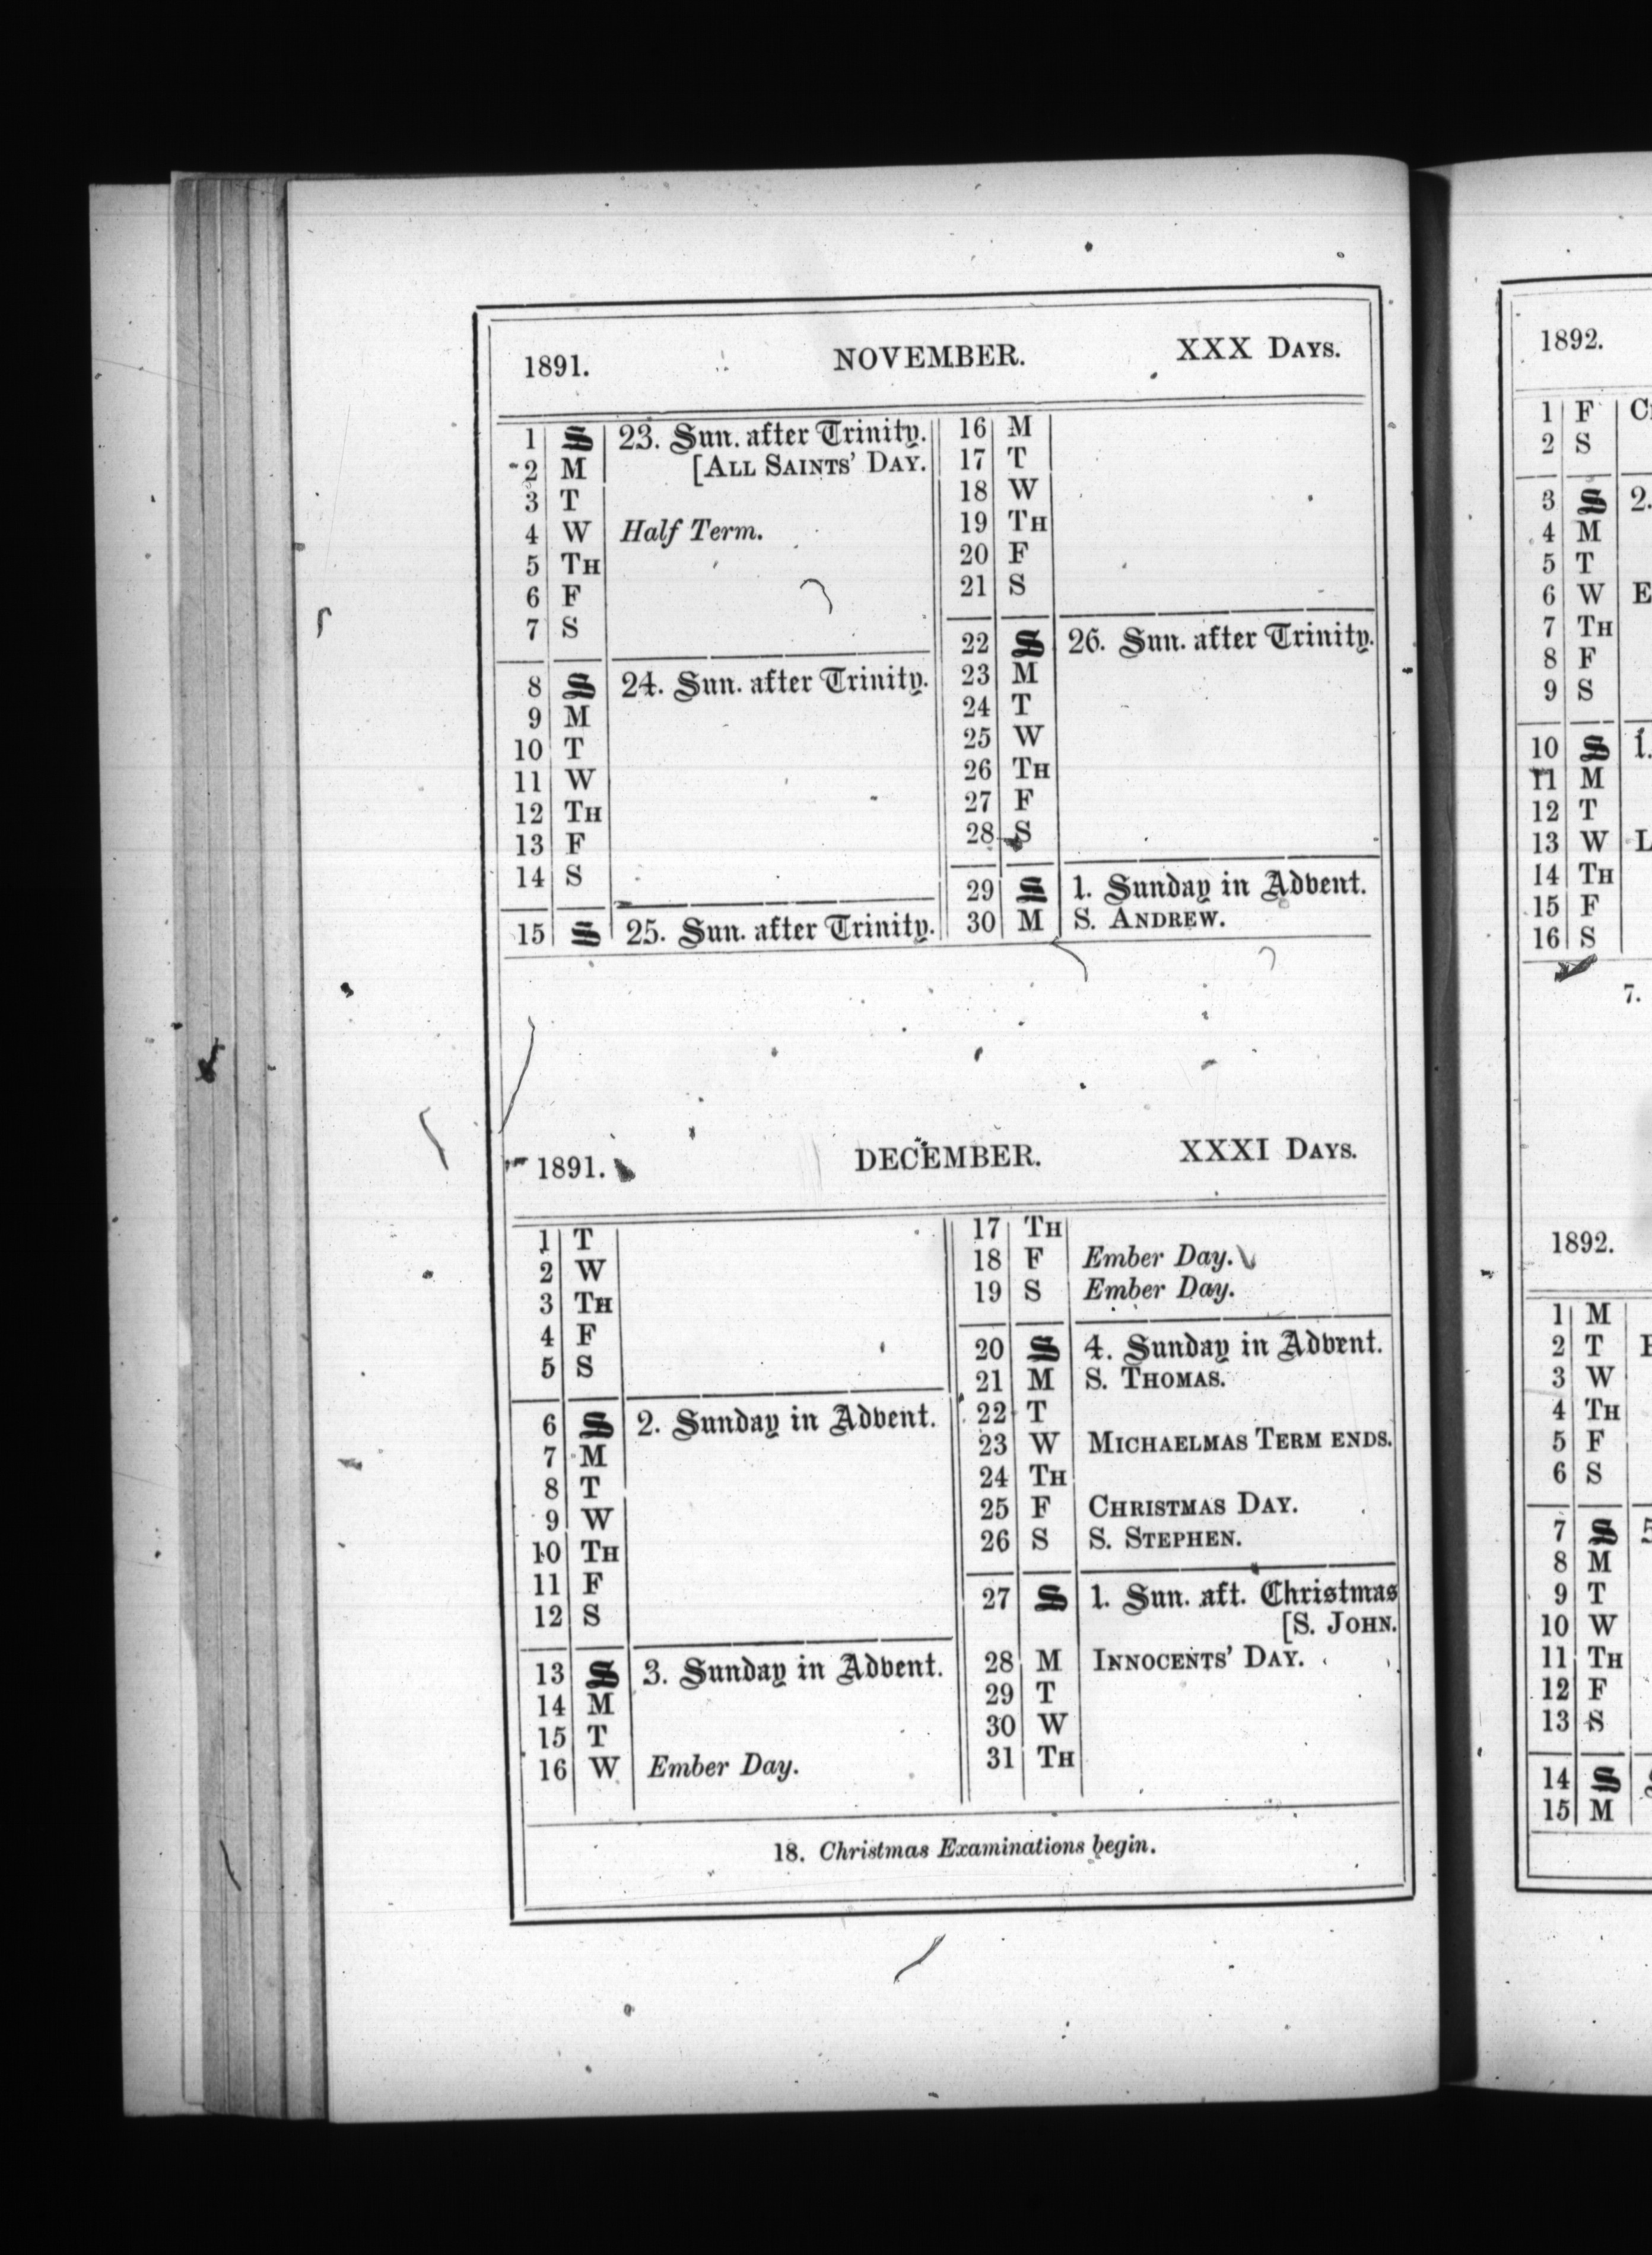 1891. NOVEMBER. XXX DAYS.
1 S 23. Sun. after Trinity.
2 M [ALL SAINTS' DAY.
3 T
4 W Half Term.
5 TH
6 F
7 S
8 S 24. Sun. after Trinity.
9 M
10 T
11 W
12 TH
13 F
14 S
15 S 25. Sun. after Trinity.
16 M
17 T
18 W
19 TH
20 F
21 S
22 S 26. Sun. after Trinity.
23 M
24 T
25 W
26 TH
27 F
28 S
29 S 1. Sunday in Advent.
30 M S. ANDREW.
1891. DECEMBER. XXXI DAYS.
1 T
2 W
3 TH
4 F
5 S
6 S 2. Sunday in Advent.
7 M
8 T
9 W
10 TH
11 F
12 S
13 S 3. Sunday in Advent.
14 M
15 T
16 W Ember Day.
17 TH
18 F Ember Day.
19 S Ember Day.
20 S 4. Sunday in Advent.
21 M S. THOMAS.
22 T
23 W MICHAELMAS TERM ENDS.
24 TH
25 F CHRISTMAS DAY.
26 S S. STEPHEN.
27 S 1. Sun. aft. Christmas
[S. JOHN.
28 M INNOCENTS' DAY.
29 T
30 W
31 TH
18. Christmas Examinations begin.
1892.
1 F
2 S
3 S 2.
4 M
5 T
6 W
7 TH
8 F
9 S
10 S 1.
11 M
12 T
13 W
14 TH
15 F
16 S
7.
1892.
1 M
2 T
3 W
4 TH
5 F
6 S
7 S 5
8 M
9 T
10 W
11 TH
12 F
13 S
14 S
15 M